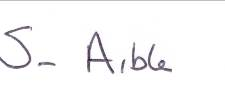 S- Aible